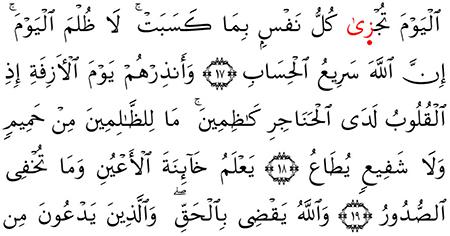 اَ۬لْيَوْمَ تُجْز۪يٰ كُلُّ نَفْسِۢ بِمَا كَسَبَتْۖ لَا ظُلْمَ اَ۬لْيَوْمَۖ
إِنَّ اَ۬للَّهَ سَرِيعُ اُ۬لْحِسَابِ ١٧ وَأَنذِرْهُمْ يَوْمَ اَ۬لْأَزِفَةِ إِذِ
اِ۬لْقُلُوبُ لَدَى اَ۬لْحَنَاجِرِ كَٰظِمِينَۖ مَا لِلظَّٰلِمِينَ مِنْ حَمِيمٖ
وَلَا شَفِيعٖ يُطَاعُ ١٨ يَعْلَمُ خَآئِنَةَ اَ۬لْأَعْيُنِ وَمَا تُخْفِى
اِ۬لصُّدُورُ ١٩ وَاللَّهُ يَقْضِى بِالْحَقِّۖ وَالَّذِينَ يَدْعُونَ مِن